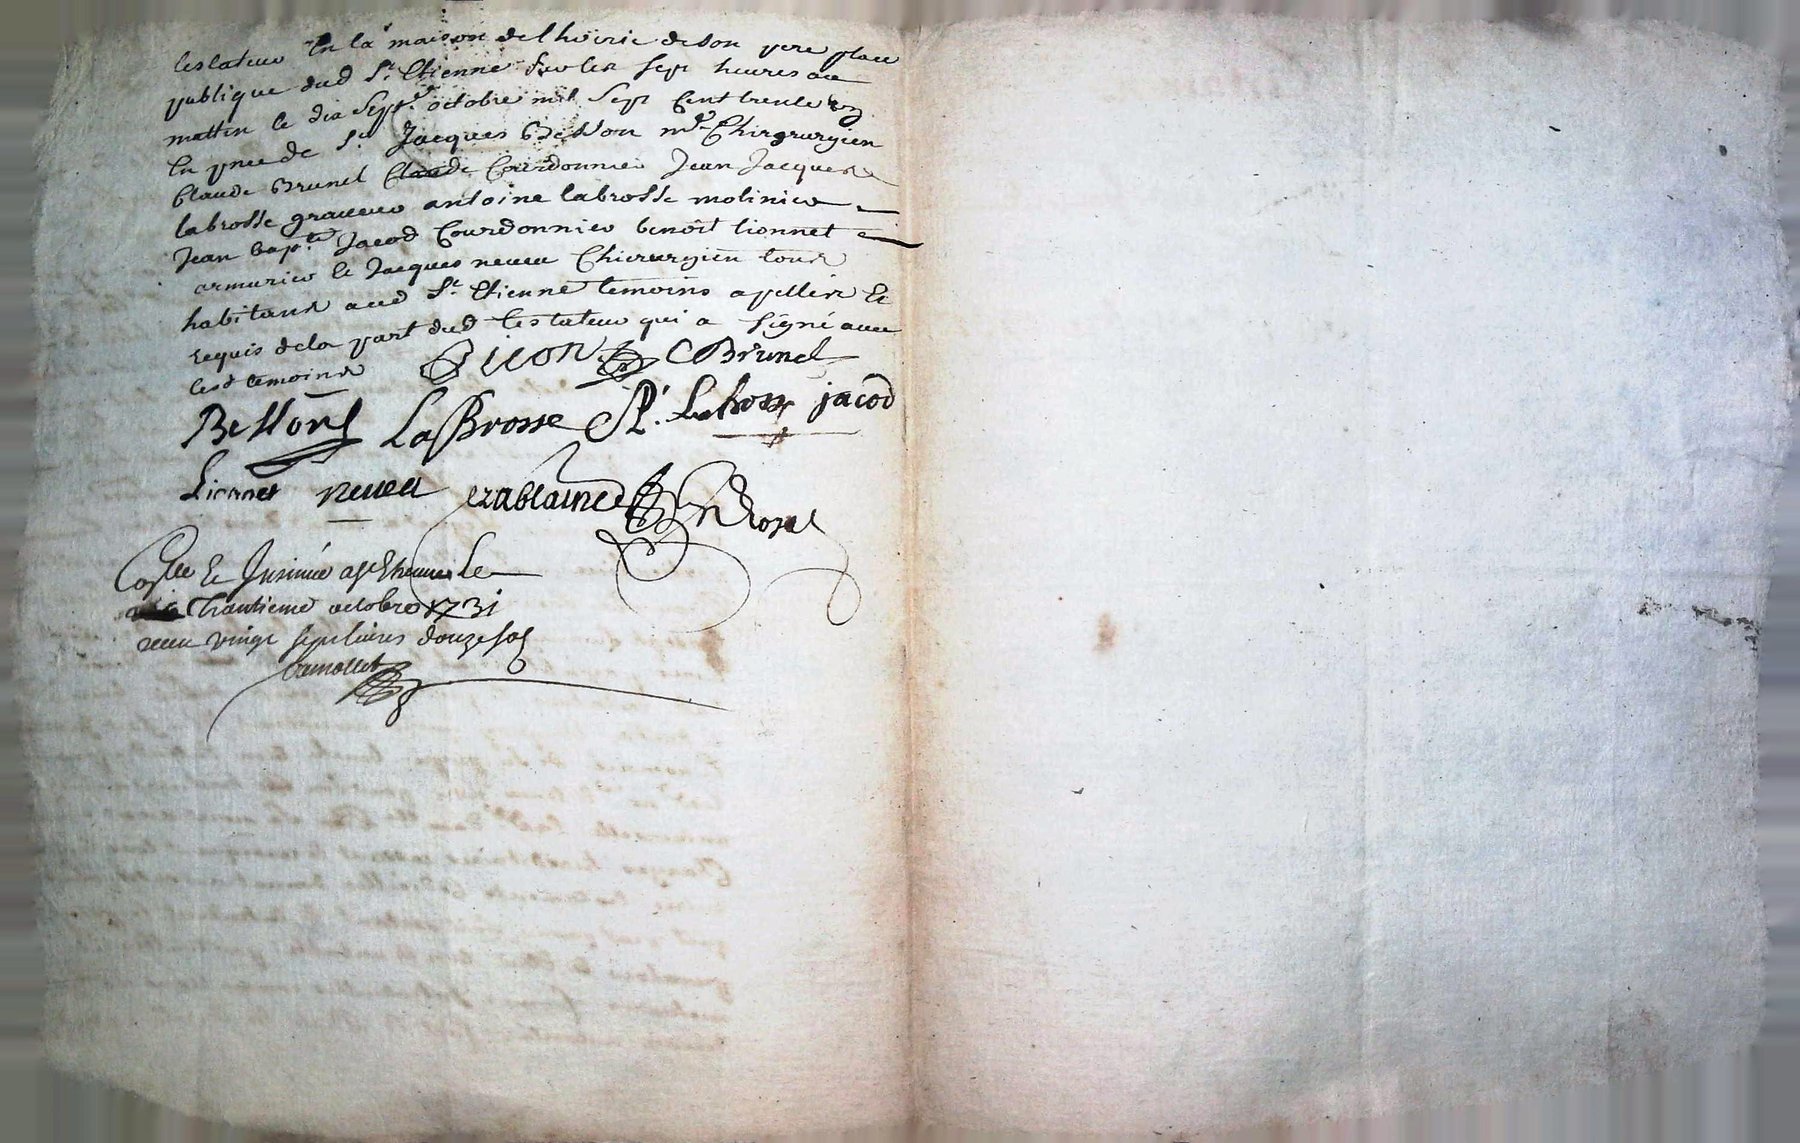 testateur En la maison de l hoirie de son pere place
publique dud St Etienne sur les sept heures du
mattin le dix sept.e octobre mil sept Cent trente un
En pnce de Sr Jacques Besson me Chirgrurgien
Claude Brunel Courdonnier Jean Jacques
labrosse graveur antoine labrosse molinier
Jean bap.te Jacod Courdonnier benoit lionnet
armurier Et Jacques neveu Chirurgien tous
habitans aud St Etienne temoins apelles Et
requis de la part dud testateur qui a signé avec
lesd temoins Picon CBrunel
Besson LaBrosse A. Labrosse jacod
Lionnet neveu
Coslé Et Insinué a St Etienne Le
trantieme octobre 1731
receu vingt sept livres douze sols